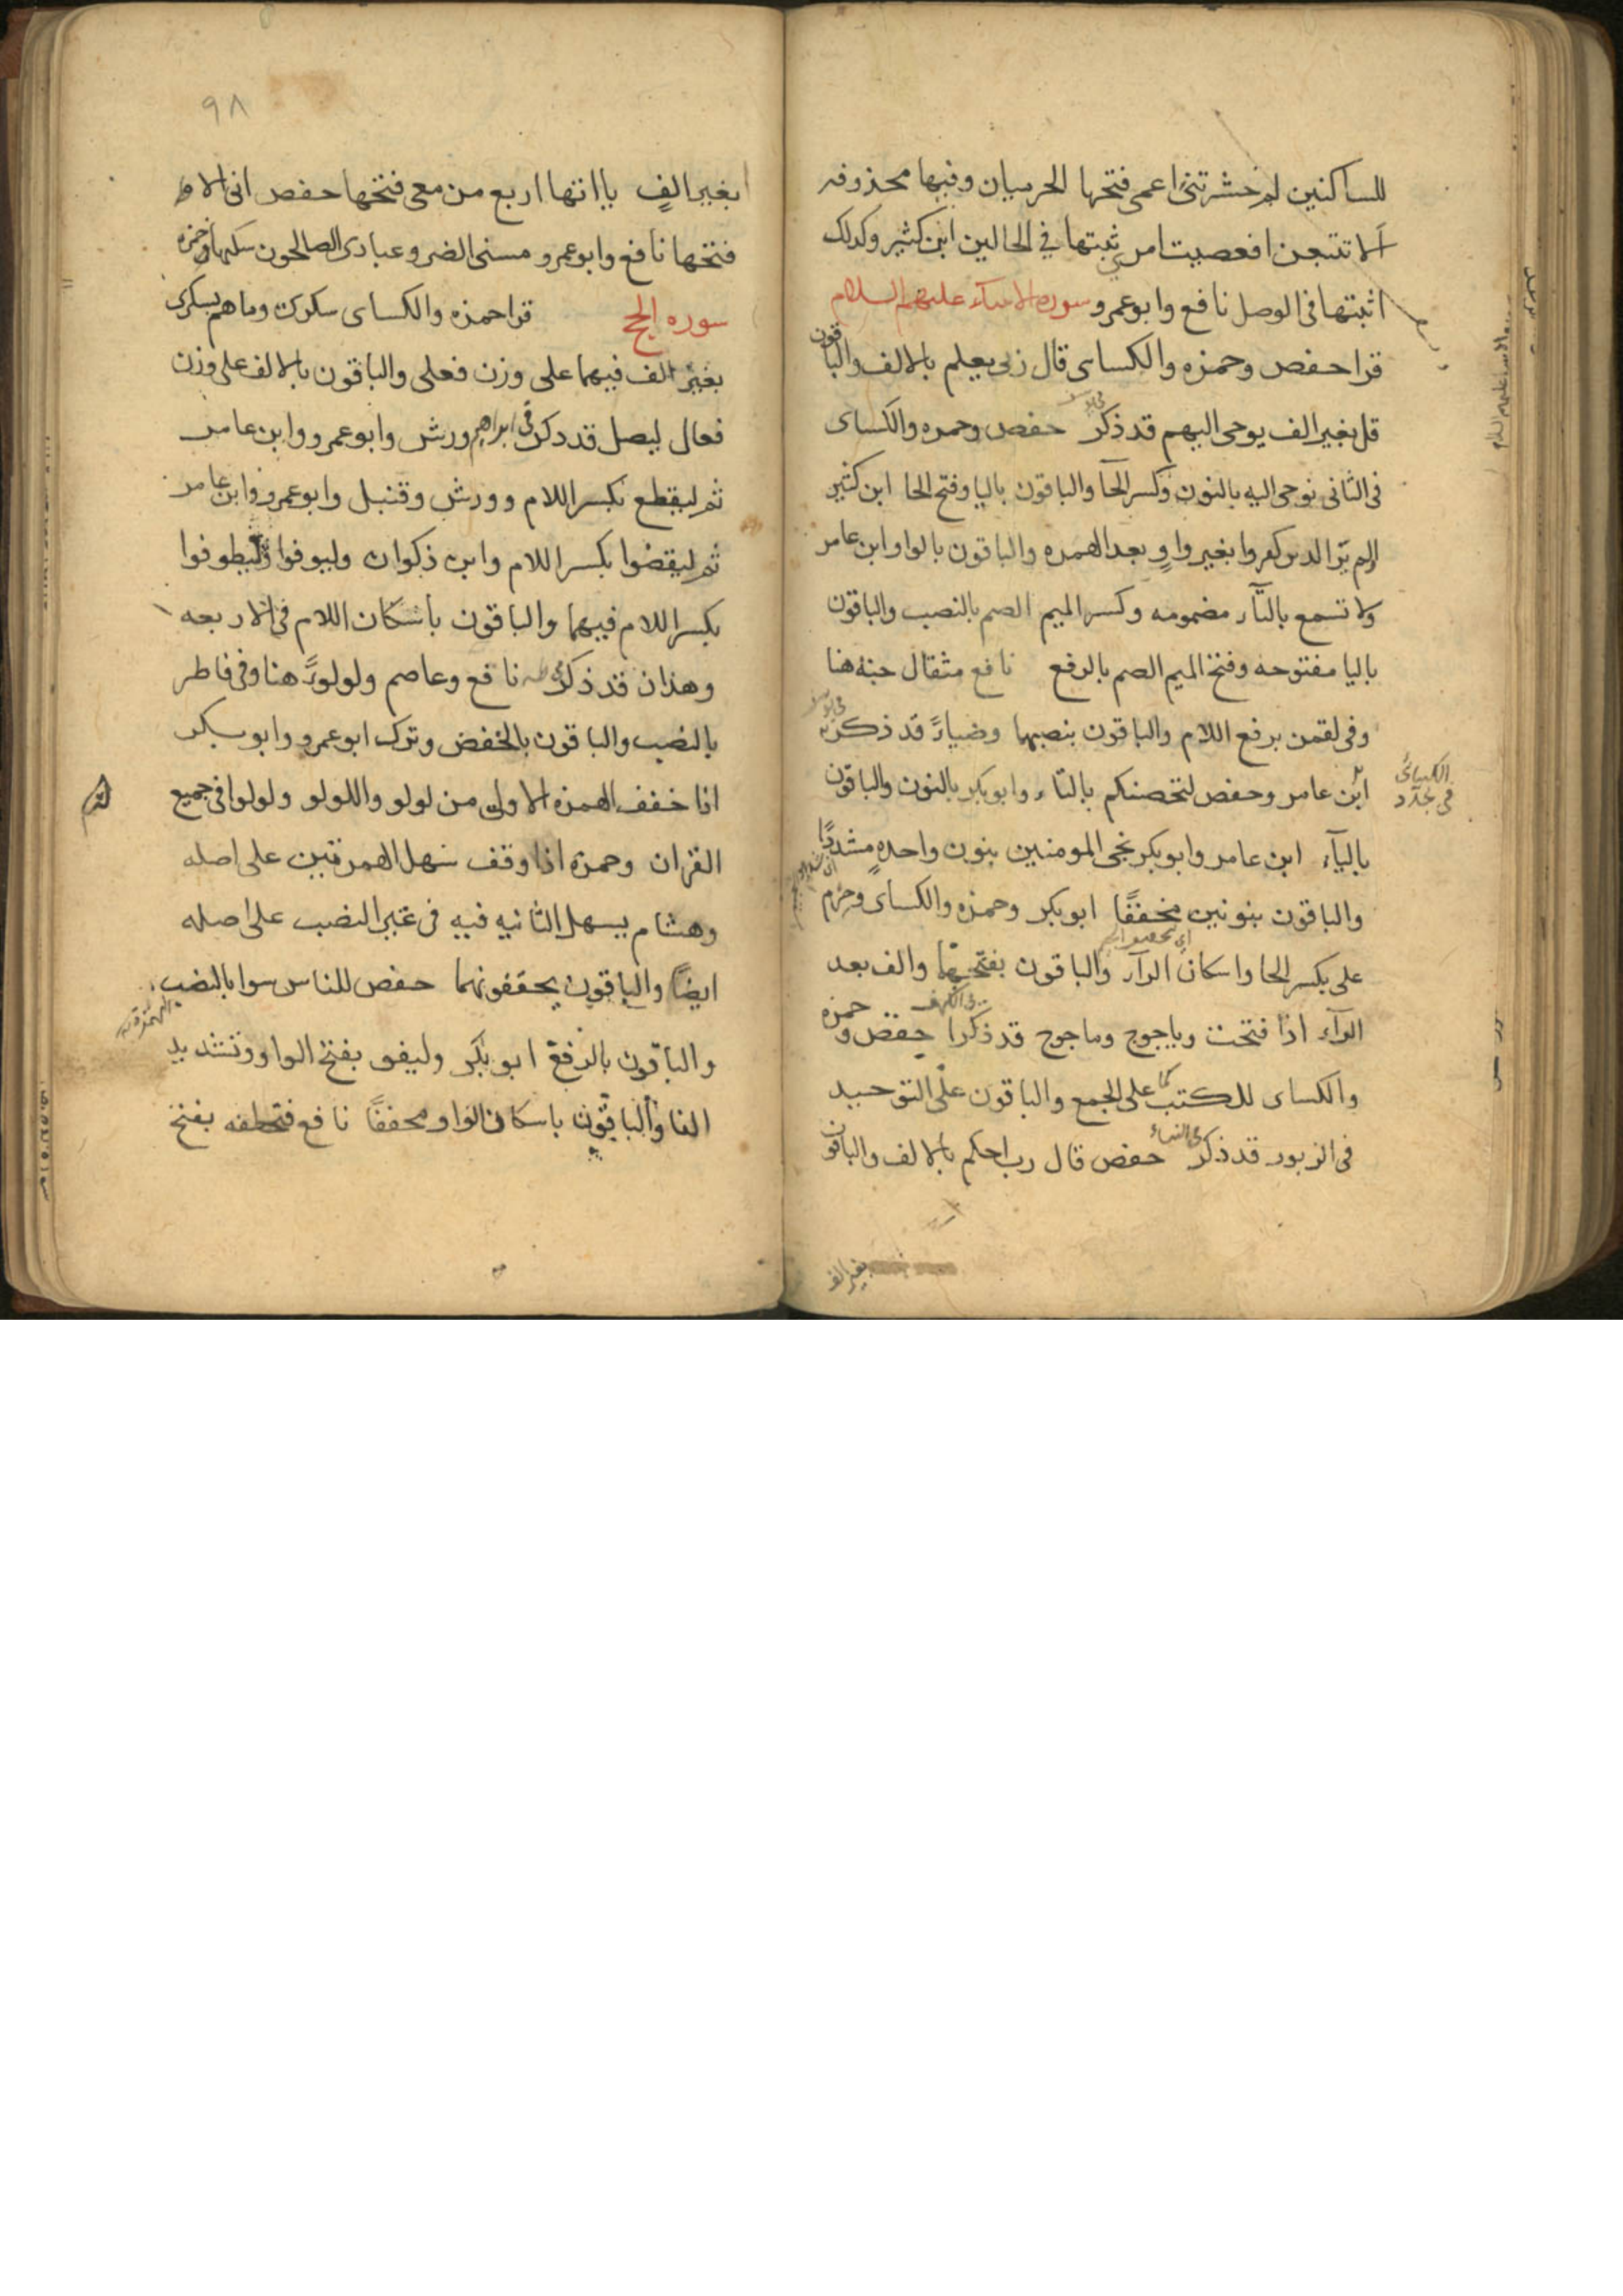 للساكنين لم حشرتنى اعمى فتحها الحرميان وفيها محذوفه
الا تتبعن افعصيت امرى ثبتها في الحالين ابن كثير وكدلك
اثبتها فى الوصل نافع وابو عمرو سوره الانبياء عليهم السلام
قرا حفص وحمزه والكساى قال ربى يعلم بالالف والباقون
قل بغير الف يوحى اليهم قد ذكر حفص وحمزه والكساى
فى الثانى نوحى اليه بالنون وكسر الحا والباقون باليا وفتح الحا ابن كثير
الم ير الدين كفروا بغير واو بعد الهمزه والباقون بالواو ابن عامر
ولا تسمع بالتاء مضمومه وكسر الميم الصم بالنصب والباقون
باليا مفتوحه وفتح الميم الصم بالرفع نافع مثقال حبه هنا
وفى لقمن برفع اللام والباقون بنصبها وضياء قد ذكر
فى يونس
الكسائى
فى جدد
ابن عامر وحفص لتحصنكم بالتاء وابو بكر بالنون والباقون
بالياء ابن عامر وابو بكر نجى المومنين بنون واحده مشددا
والباقون بنونين مخففا ابو بكر وحمزه والكساى وحرم
على بكسر الحا واسكان الراء والباقون بفتحهما والف بعد
الراء اذا فتحت وياجوج وماجوج قد ذكرا فى الكهف حفص وحمزه
والكساى للكتب كما على الجمع والباقون على التوحيد
فى الزبور قد ذكر فى النساء حفص قال رب احكم بالالف والباقون
بغير الف
٩٨
بغير الف يااتها اربع من معى فتحها حفص انى اله
فتحها نافع وابو عمرو مسنى الضر وعبادى الصالحون سكنها حمزه
سوره الحج قرا حمزه والكساى سكرى وما هم بسكرى
بغير الف فيهما على وزن فعلى والباقون بالالف على وزن
فعال ليضل قد ذكر فى ابراهيم ورش وابو عمرو وابن عامر
ثم ليقطع بكسر اللام وورش وقنبل وابو عمرو وابن عامر
ثم ليقضوا بكسر اللام وابن ذكوان وليوفوا وليطوفوا
بكسر اللام فيهما والباقون باسكان اللام فى الاربعه
وهذان قد ذكر نافع وعاصم ولولوءا هنا وفى فاطر
بالنصب والباقون بالخفض وترك ابو عمرو وابو بكر
اذا خفف الهمزه الاولى من لولو واللولو ولولوا فى جميع
القران وحمزه اذا وقف سهل الهمزتين على اصله
وهشام يسهل الثانيه فيه فى غير النصب على اصله
ايضا والباقون يحققونهما حفص للناس سوا بالنصب
والباقون بالرفع ابو بكر وليفو بفتح الواو وتشديد
الفا والباقون باسكان الواو مخففا نافع فتخطفه بفتح